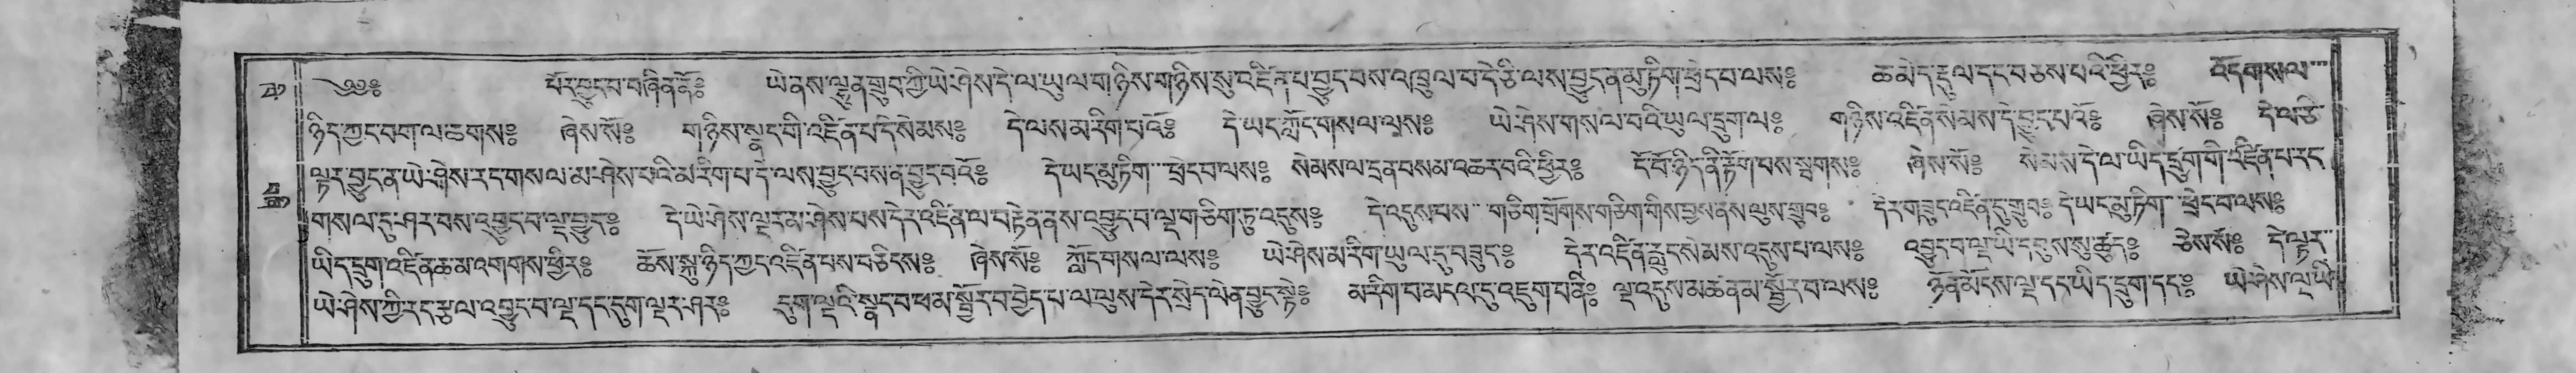 ༄༅༔ པོར་བྱུང་བ་བཞིན་ནོ༔ ཡེ་ནས་ལྷུན་གྲུབ་ཀྱི་ཡེ་ཤེས་དེ་ལ་ཡུལ་གཉིས་གཉིས་སུ་འཛིན་པ་བྱུང་བས་འཁྲུལ་པ་དེ་ཅི་ལས་བྱུང་ན་མུ་ཏིག་ཕྲེང་བ་ལས༔ ཆ་མེད་རྡུལ་དང་བཅས་པའི་ཕྱིར༔ འོད་གསལ
ཉིད་ཀྱང་བག་ལ་ཆགས༔ ཞེས་སོ༔ གཉིས་སྣང་གི་འཛིན་པ་དེ་སེམས༔ དེ་ལས་མ་རིག་པའོ༔ དེ་ཡང་ཀློང་གསལ་ལས༔ ཡེ་ཤེས་གསལ་བའི་ཡུལ་དྲུག་ལ༔ གཉིས་འཛིན་སེམས་དེ་བྱུང་པའོ༔ ཞེས་སོ༔ དེ་ལ་ཅི
ལྟར་བྱུང་ན་ཡེ་ཤེས་རང་གསལ་མ་ཤེས་པའི་མ་རིག་པ་དེ་ལས་བྱུང་བས་ན་བྱུང་བའོ༔ དེ་ཡང་མུ་ཏིག་ཕྲེང་བ་ལས༔ སེམས་ལ་དྲན་བསམ་འཆར་བའི་ཕྱིར༔ ངོ་བོ་ཉིད་ནི་རྟོག་པས་སྦགས༔ ཞེས་སོ༔ སེམས་དེ་ལ་ཡིད་དྲུག་གི་འཛིན་པ་རང
གསལ་དུ་ཤར་བས་འབྱུང་བ་ལྔ་བྱུང༔ དེ་ཡེ་ཤེས་ལྔར་མ་ཤེས་པས་དེར་འཛིན་ལ་བརྟེན་ནས་འབྱུང་བ་ལྔ་གཅིག་ཏུ་འདུས༔ དེ་འདུས་པས་གཅིག་གྲོགས་གཅིག་གིས་བྱས་ནས་ལུས་གྲུབ༔ དེར་གཟུང་འཛིན་དུ་གྲུབ༔ དེ་ཡང་མུ་ཏིག་ཕྲེང་བ་ལས༔
ཡིད་དྲུག་འཛིན་ཆ་མ་འགགས་ཕྱིར༔ ཆོས་སྐུ་ཉིད་ཀྱང་འཛིན་པས་བཅིངས༔ ཞེས་སོ༔ ཀློང་གསལ་ལས༔ ཡེ་ཤེས་མ་རིག་ཡུལ་དུ་བཟུང༔ དེར་འཛིན་རླུང་སེམས་འདུས་པ་ལས༔ འབྱུང་བ་ལྔ་ཡི་དབུས་སུ་ཚུད༔ ཅེས་སོ༔ དེ་ལྟར
ཡེ་ཤེས་ཀྱི་རང་རྩལ་འབྱུང་བ་ལྔ་དང་དུག་ལྔར་ཤར༔ དུག་ལྔའི་སྣང་བ་ཕམ་སྦྱོར་བ་བྱེད་པ་ལ་ལུས་དེར་སྲེད་ལེན་བྱུང་སྟེ༔ མ་རིག་བ་མངལ་དུ་འཇུག་པ་ནི༔ ལྔ་འདུས་མཚན་མ་སྦྱོར་བ་ལས༔ ཉོན་མོངས་ལྔ་དང་ཡིད་དྲུག་དང༔ ཡེ་ཤེས་ལྔ་ཡི